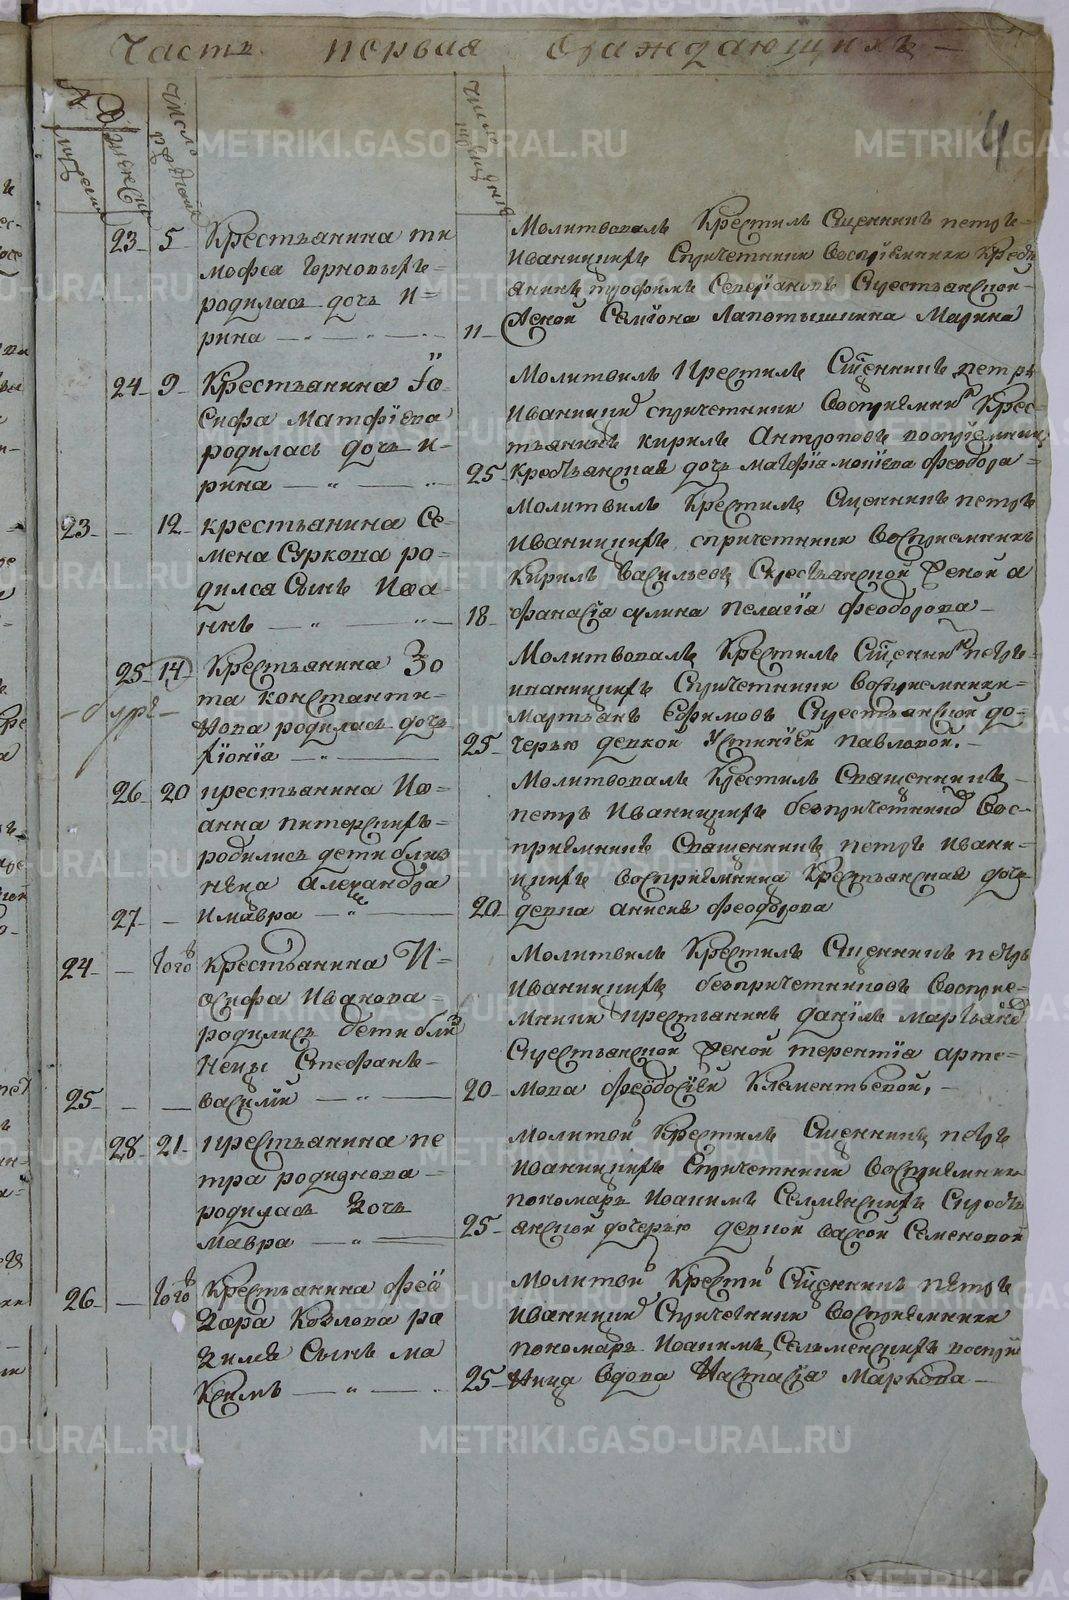 Часть первая ораждающихъ
4
23 5 Крестьянина ти
мофеа Черновыхъ
родилась дочь И=
рина
Молитвовалъ Крестилъ Сщенникъ петръ
Иваницкихъ Спричетники воспріемники Кресть
янинъ трофимъ Северіановъ Скрестьянской
11 женой Семіона Лапотышкина Марина
24 9 Крестьянина Іо
сифа Матфіева
родилась дочь И=
рина
Молитвилъ Крестилъ Сщенникъ петръ
Иваницкий спричетники Восприемники Крес
тьянинъ кирилъ Антроповъ воспріемница
25 Крестьянская дочь матфіа Феодора
23 12 крестьянина Се
мена Суркова ро
дился Сынъ Иоа
ннъ
Молитвилъ Крестилъ Сщенникъ петръ
Иваницкихъ спричетники Восприемникъ
Кирилъ Васильевъ Скрестьянской женой а
18 фанасіа сулина Пелагіа Феодорова
25 14 Крестьянина Зо
та константи
нова родилась дочь
Хіоніа
Молитвовалъ Крестилъ Сщенникъ петръ
иваницкихъ Спричетники восприемники
Мартьанъ Ефимовъ Скрестьянской до
25 черью девкой Устиніей Павловой.
26 20 крестьянина Ио
анна питерскихъ
родились дети близ
неца Александра
27 и мавра
Молитвовалъ Крестилъ Священникъ
петръ Иваницкихъ безпричетникъ Вос
приемникъ Священникъ петръ ивани
цкихъ восприемница Крестьянская дочь
20 девка анисия Феодорова
24 того Крестьанина И=
осифа Иванова
родились дети близ
нецы Стефанъ
25 василій
Молитвилъ Крестилъ Сщенникъ петръ
Иваницкихъ безпричетниковъ Воспре
мники крестьанинъ даніилъ мартьанов
Скрестьянской женой терентіа арте
20 мова Феодосіей Клементьевой.
28 21 крестьянина пе
тра родионова
родилась Дочь
мавра
Молитвой Крестилъ Сщенникъ петръ
Иваницкихъ Спричетники восприемники
пономаръ Иоакимъ Селменскихъ Скресть
25 анской дочерью девкой васой Семеновой
26 того Крестьянина Фео
дора Козлова ро
дился Сынъ ма
ксимъ
Молитвой Крестил Сщенникъ петръ
Иваницкий Спричетники восприемники
пономаръ Иоакимъ Сельменскихъ воспри
25 ница вдова Настасіа Маркова
METRIKI.GASO-URAL.RU